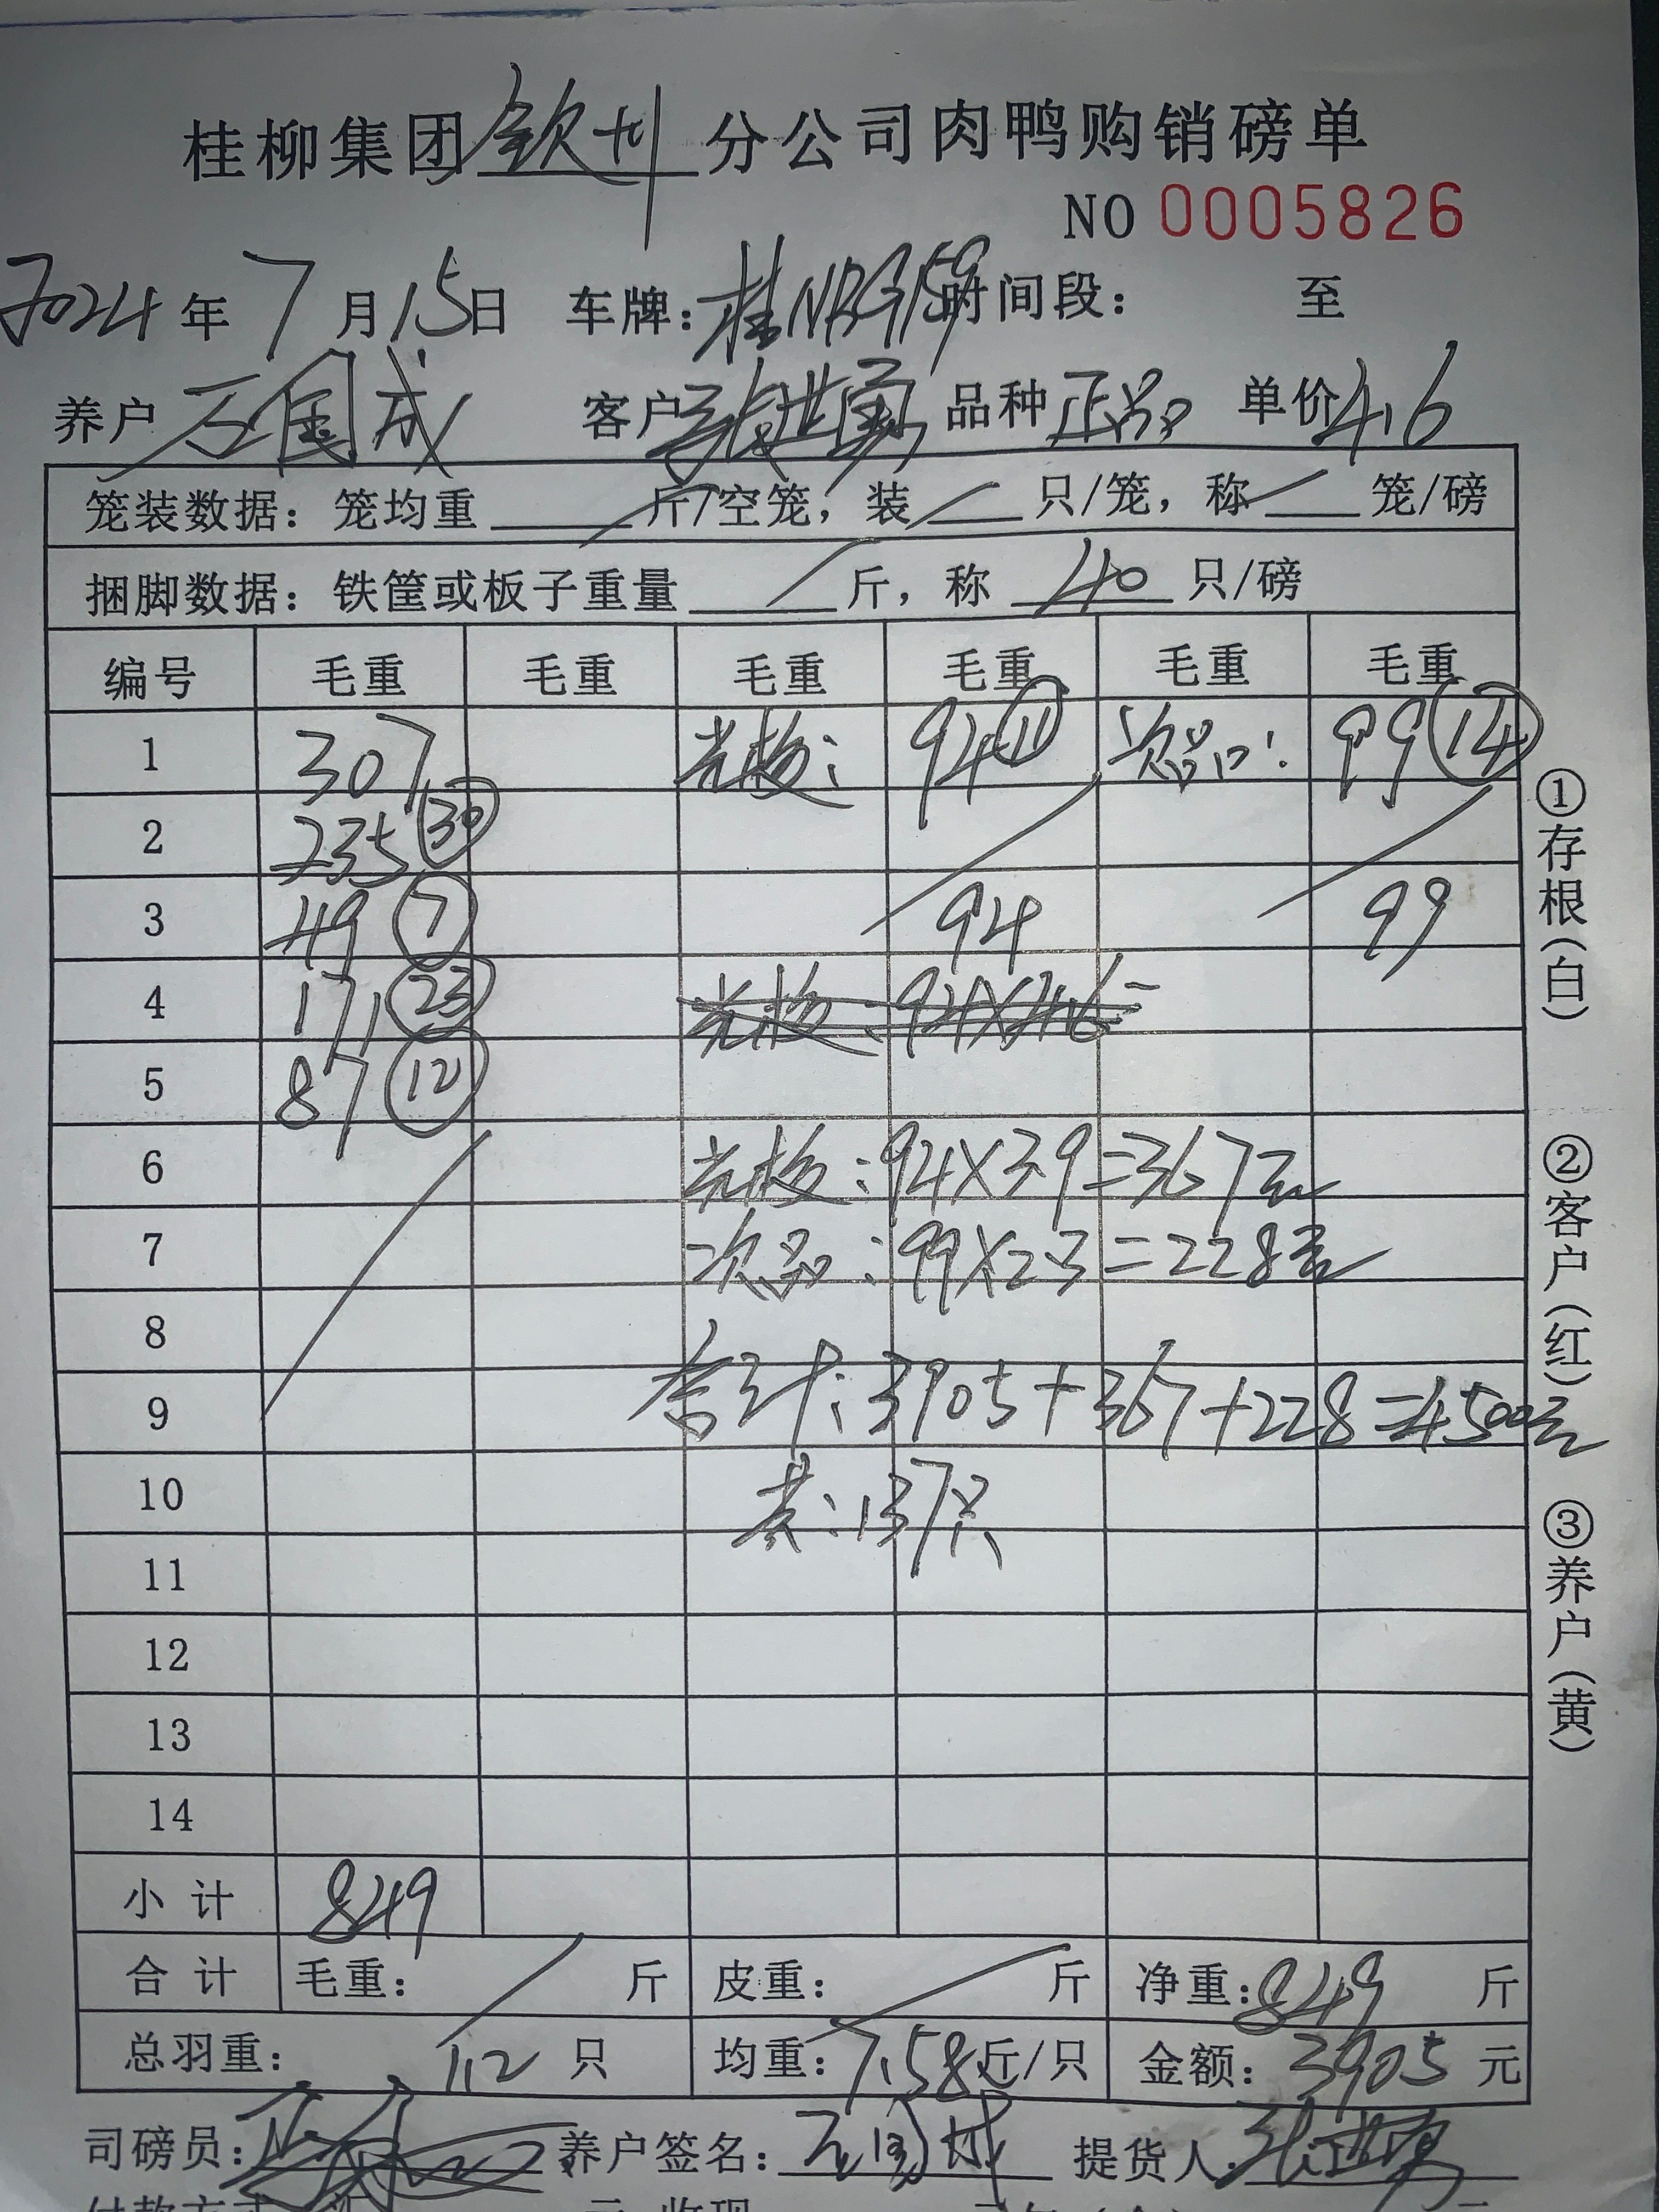 桂柳集团钦州分公司肉鸭购销磅单
NO 0005826
2024年7月15日 车牌:桂NBG159时间段: 至
养户 石国成 客户 张世勇 品种 正品 单价4.6
笼装数据: 笼均重 斤/空笼, 装 只/笼, 称 笼/磅
捆脚数据: 铁筐或板子重量 斤, 称 40 只/磅
编号 毛重 毛重 毛重 毛重 毛重 毛重
1 307 94 11 次品: 99 14
2 235 30
3 49 7 94 99
4 171 23
5 87 12
6 :94X3.9=367元
7 次品:99X2.3=228元
8
9 合计:3905+367+228=4500元
10 共:137只
11
12
13
14
小计 849
合计 毛重: 斤 皮重: 斤 净重:849 斤
总羽重: 112 只 均重:7.58斤/只 金额: 3905 元
司磅员: 养户签名:石国成 提货人:张世勇
①存根(白)
②客户(红)
③养户(黄)